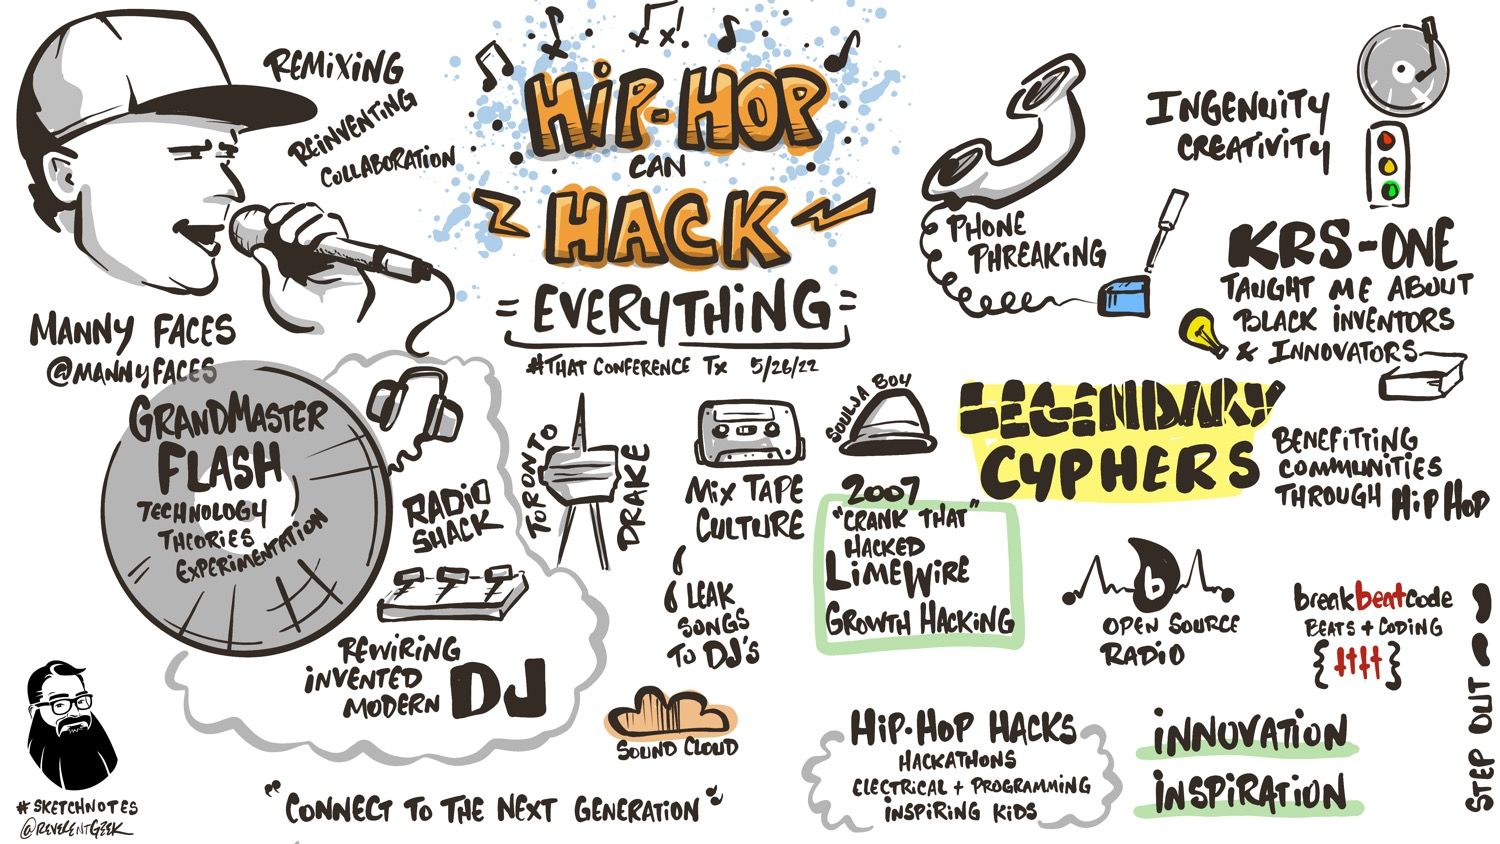 REMIXING
REINVENTING
COLLABORATION
HIP-HOP
CAN
HACK
EVERYTHING
#THAT CONFERENCE TX 5/26/22
MANNY FACES
@MANNYFACES
PHONE
PHREAKING
INGENUITY
CREATIVITY
KRS-ONE
TAUGHT ME ABOUT
BLACK INVENTORS
& INNOVATORS
GRANDMASTER
FLASH
TECHNOLOGY
THEORIES
EXPERIMENTATION
RADIO
SHACK
REWIRING
INVENTED
MODERN
DJ
TORONTO
DRAKE
MIX TAPE
CULTURE
LEAK
SONGS
TO DJ'S
SOUND CLOUD
SOULJA BOY
2007
"CRANK THAT"
HACKED
LIMEWIRE
GROWTH HACKING
LEGENDARY
CYPHERS
BENEFITTING
COMMUNITIES
THROUGH HIP HOP
b
OPEN SOURCE
RADIO
breakbeatcode
BEATS + CODING
HIP-HOP HACKS
HACKATHONS
ELECTRICAL + PROGRAMMING
INSPIRING KIDS
INNOVATION
INSPIRATION
STEP OUT
"CONNECT TO THE NEXT GENERATION"
#SKETCHNOTES
@REVERENTGEEK